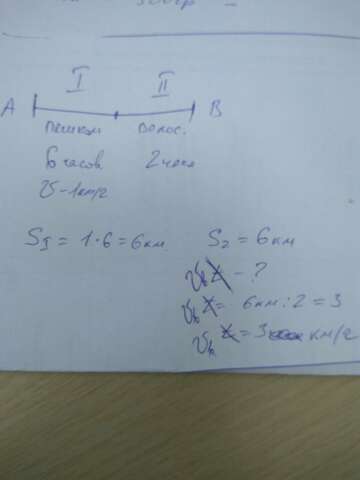 I II
A B
пешком велос.
6 часов 2 часа
V - 1 км/ч
S₁ = 1 · 6 = 6 км S₂ = 6 км
Vв - ?
Vв = 6 км : 2 = 3
Vв = 3 км/ч